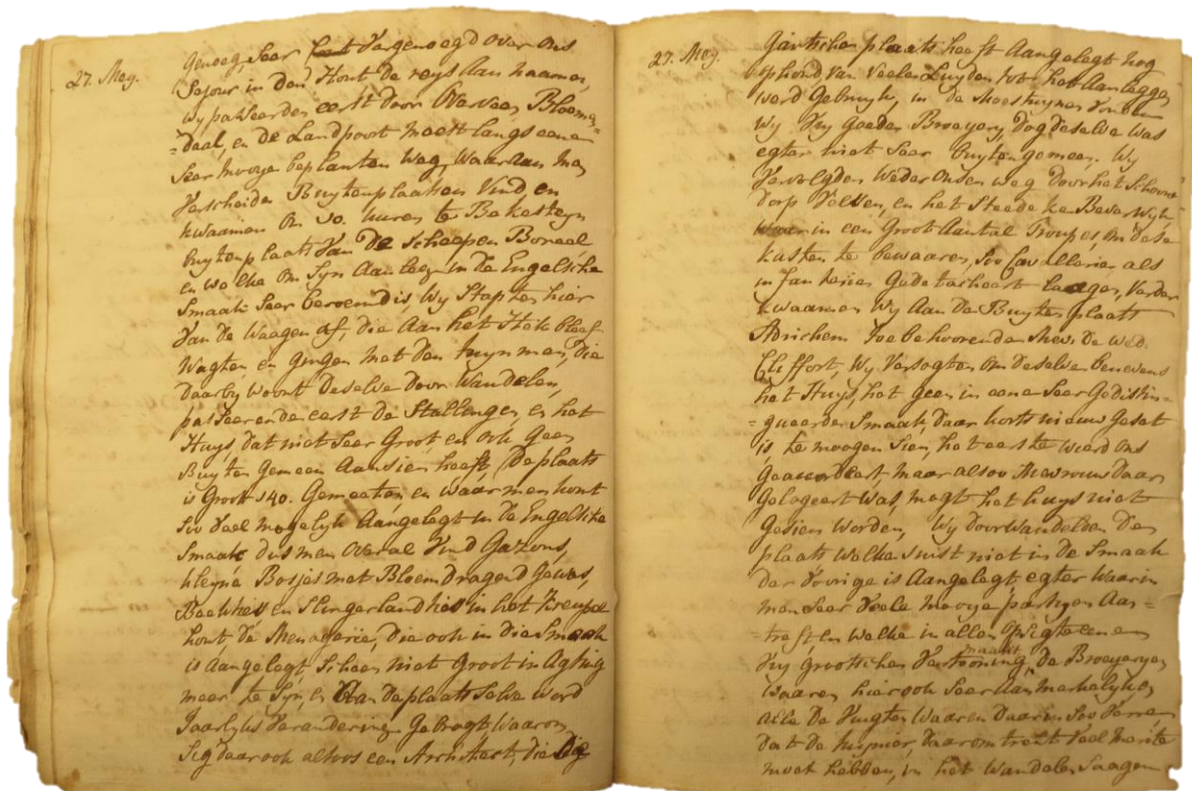 27. Mey.
genoeg, Seer Vergenoegd over ons
Sejour in den Hout de reys aan naamen,
wy passeerden eerst door Overveen, Bloemen=
=daal, en de Landpoort meest langs eene
Seer mooye beplanten Weg, waar aan Men
Verscheide Buytenplaatsen Vind en
kwaamen om 10. uuren te Bakesteyn
buytenplaats Van De Scheepen Boreel
en welke om Syn Aanleg in de Engelsche
Smaak Seer beroemd is, Wy Stapten hier
Van de Waagen af, die Aan het Hek bleef
Wagten en gingen met den tuynman, die
Daarby woont deselve door Wandelen,
passeerende eerst de Stallingen, en het
Huys, dat niet Seer Groot en ook Geen
Buyten Gemeen Aansien heeft, De plaats
is Groot 140. Gemeeten, en waar men kont
Soo Veel mogelyk Aangelegt in de Engelsche
Smaak dus men overal Vind Gazons,
kleyne Bosjes met Bloem Dragend Gewas,
Beekjes en Slingerlaantjes in het Kreupel
hout, de Menagerie, die ook in die Smaak
is Aangelegt, Scheen niet Groot in Agting
meer te Syn, en Aan De plaats Selve word
Jaarlyks Verandering Gebragt waarom
Sig daar ook altoos een Architect, die de
27. Mey.
Gantsche plaats heeft Aangelegt nog
ophoud, Van Veele Luyden tot het Aanleggen
word Gebruyk, in de Moestuynen Vonden
Wy Vry Goede Broeyery, dog deselve was
egter niet Seer buyten gemeen. Wy
Vervolgden Weder onsen weg door het Schoone
Dorp Velsen, en het Steedeke Beverwyk
waar in een Groot Aantal Troupes, om de
kusten te bewaaren, Soo Cavallerie, als
infanterie Gedetacheert laagen, Verder
kwaamen Wy Aan De Buytenplaats
Adrichem Toebehoorende Mew. de Wed.
Cliffort, Wy Versogten om deselve benevens
het Huys, het geen in eene Seer Gedistin=
=gueerde Smaak daar korts nieuw Geset
is, te moogen Sien, het eerste wierd ons
Geaccordeert, maar alsoo Mewrouw Daar
Gelogeert Was, mogt het huys niet
Gesien Worden, Wy Doorwandelden De
plaats Welke Juist niet in de Smaak
der Vorige is Aangelegt, egter Waar in
men Seer Veele Mooye partyen Aan=
=treft, en Welke in allen opsigte een
Vry Grootschen Vertooning maakt, de Broeyeryen
waaren hier ook Seer Aanmerkelyk,
alle De Vrugten Waaren Daar in Soo Verre,
Dat de tuynier, daaromtrent Veel Merite
moet hebben, in het Wandelen Saagen